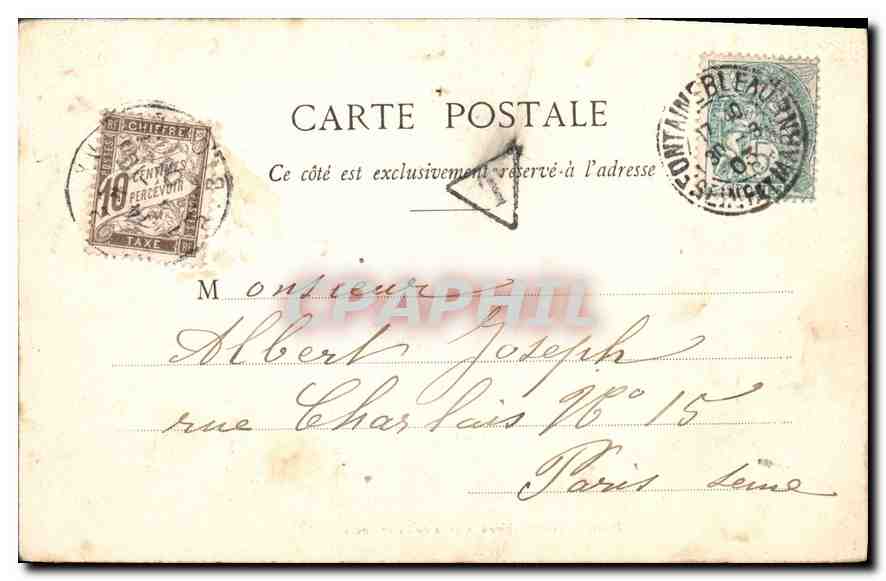 CARTE POSTALE
Ce côté est exclusivement réservé à l'adresse
CHIFFRE
10 CENTIMES
A PERCEVOIR
TAXE
FONTAINEBLEAU
SEINE ET MARNE
5
CPAPHIL
Monsieur
Albert Joseph
rue Charlais No 15
Paris seine